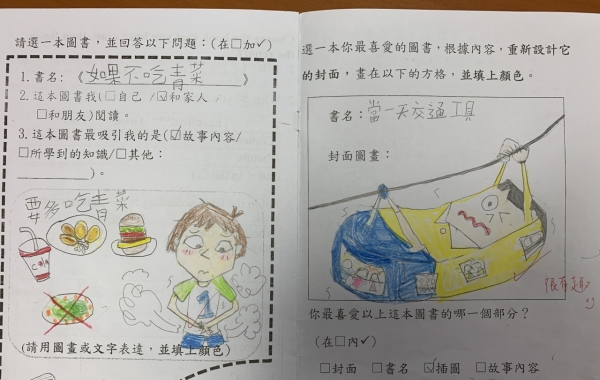 請選一本圖書，並回答以下問題：(在□加✓)
1. 書名：《如果不吃青菜》
2. 這本圖書我(□自己/☑和家人/
□和朋友)閱讀。
3. 這本圖書最吸引我的是(☑故事內容/
□所學到的知識/□其他：
__________)。
要多吃青菜
(請用圖畫或文字表達，並填上顏色)
選一本你最喜愛的圖書，根據內容，重新設計它
的封面，畫在以下的方格，並填上顏色。
書名：當一天交通工具
封面圖畫：
很有趣
你最喜愛以上這本圖書的哪一個部分？
(在□內✓)
□封面 □書名 ☑插圖 □故事內容